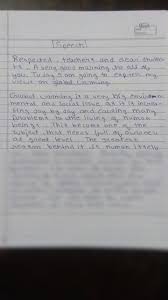 Speech
Respected, teachers and dear stude
nts. A very good morning to all of
you. Today I am going to express my
views on global warming.
Global warming is a very big environ
mental and social issue as it is increa
sing day by day and causing many
problems to the living of human
beings. This become one of the
subject that needs full of awareness
at great level. The greatest
reason behind it is human itself